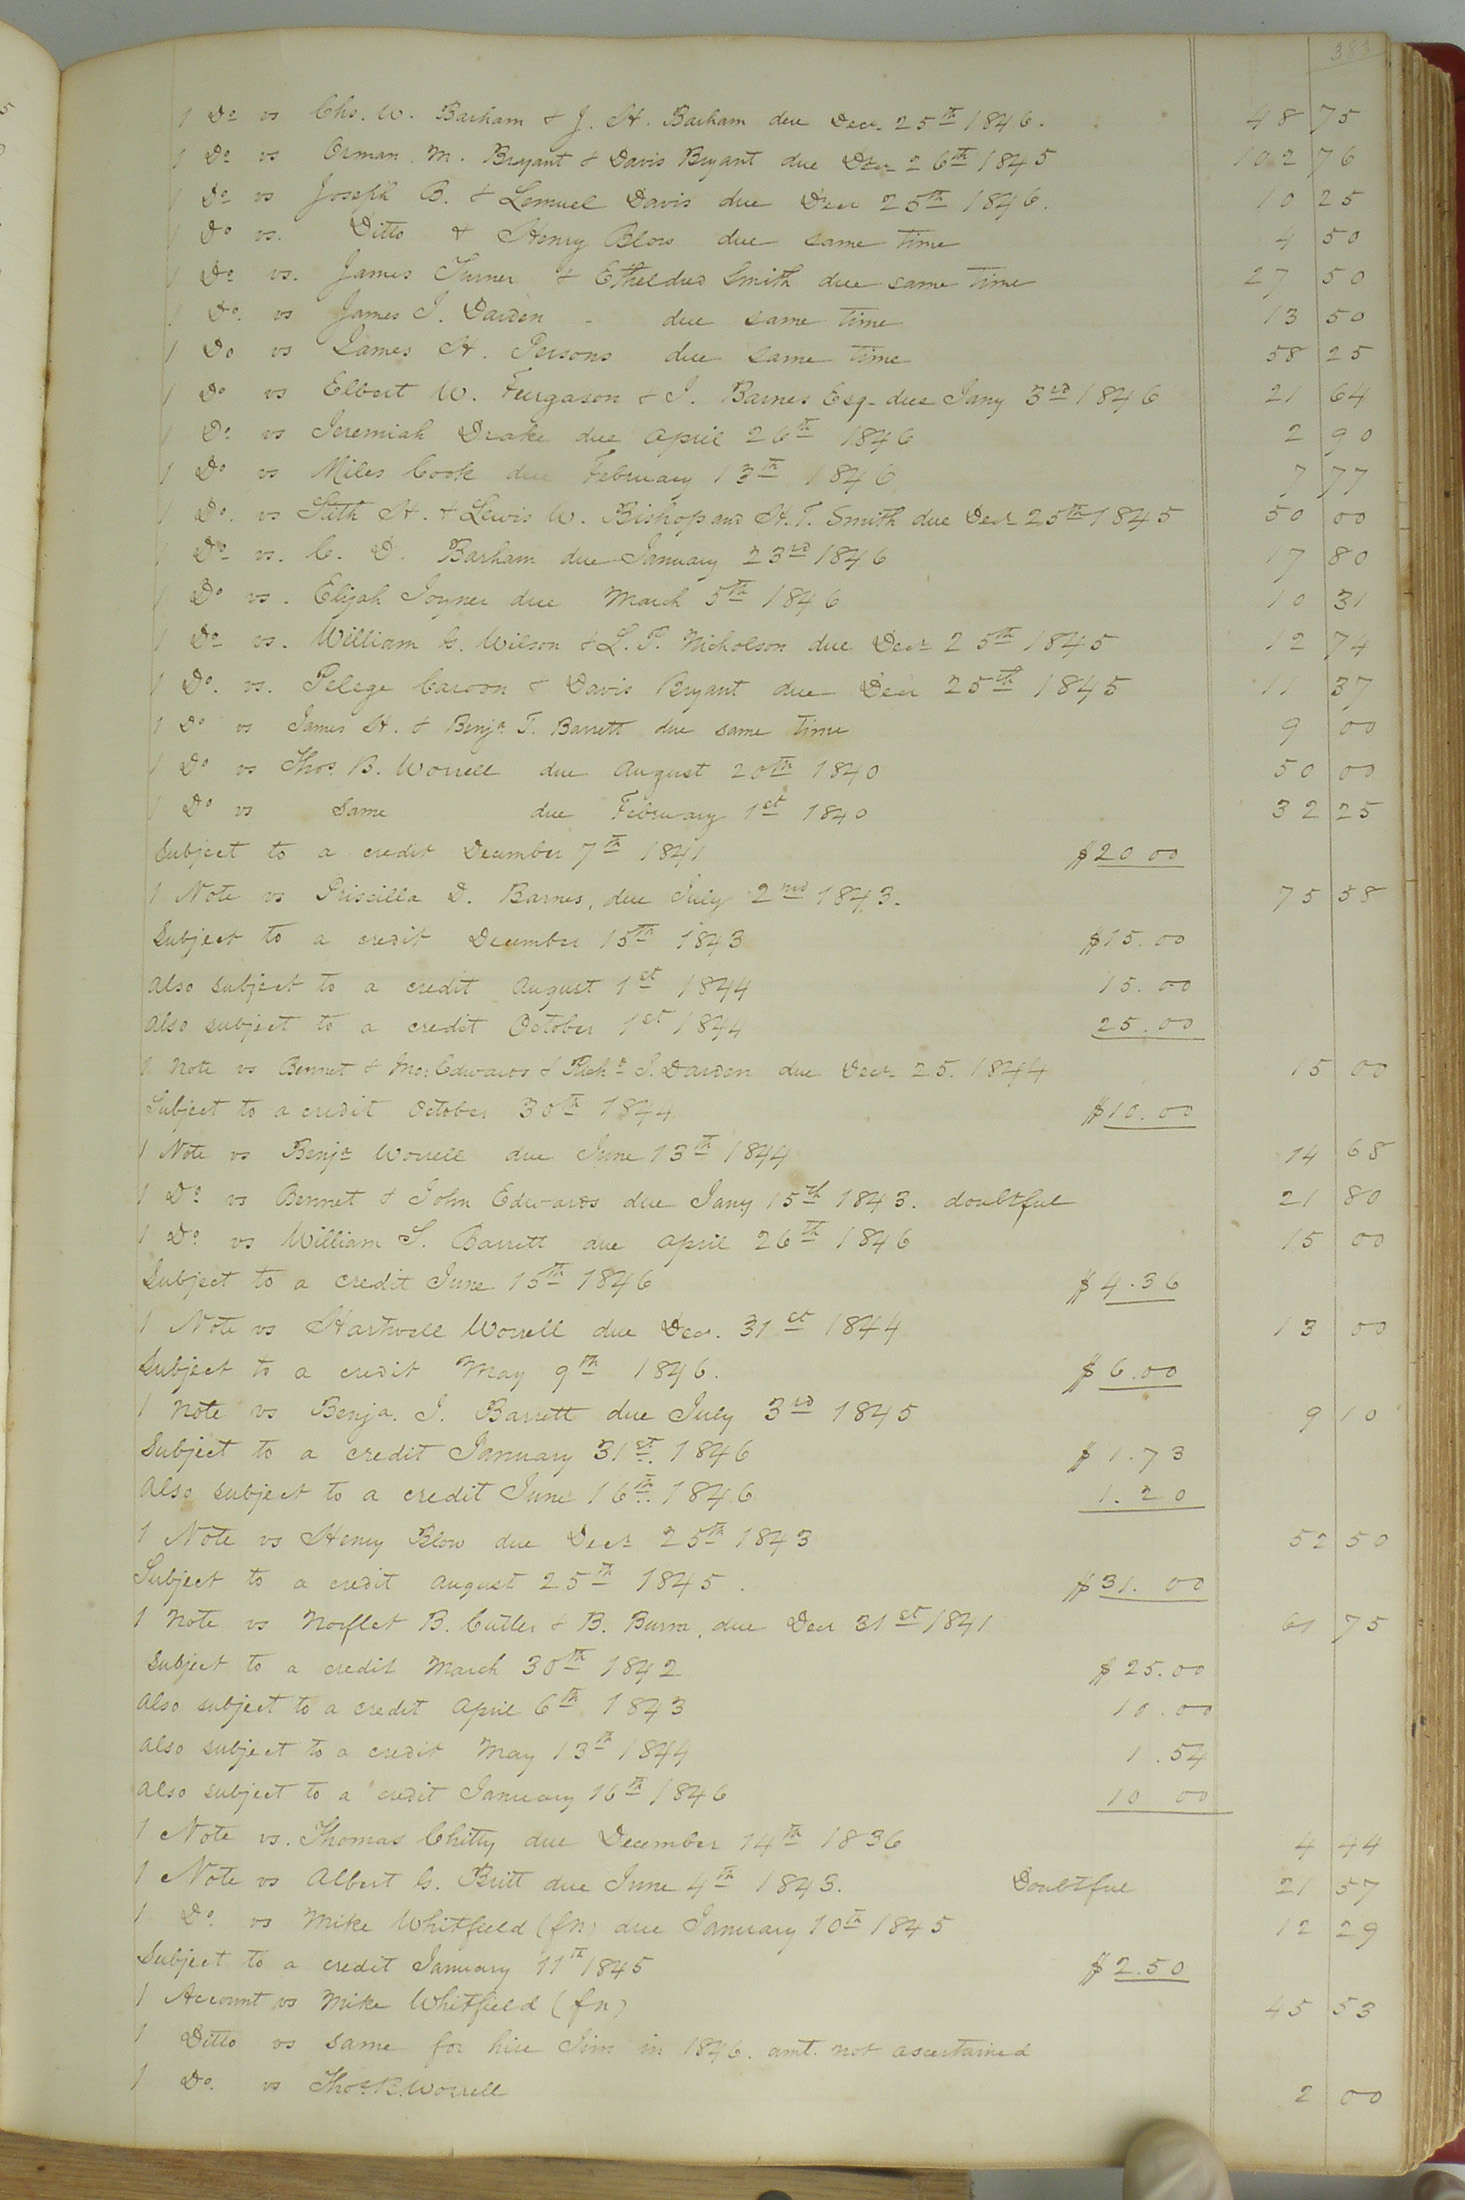 383
1 Do vs Chs. W. Barham & J. H. Barham due Decr. 25th 1846. 48 75
1 Do vs Orman. M. Bryant & Davis Bryant due Decr 26th 1845 102 76
1 Do vs Joseph B. & Lemuel Davis due Decr 25th 1846. 10 25
1 Do vs. Ditto & Henry Blow due same time 4 50
1 Do vs. James Turner & Etheldred Smith due same time 27 50
1 Do. vs James J. Darden - due same time 13 50
1 Do vs James H. Persons due same time 58 25
1 Do vs Elbert W. Furgason & J. Barnes Esq - due Jany 3rd 1846 21 64
1 Do vs Jeremiah Drake due April 26th 1846 2 90
1 Do vs Miles Cook due February 13th 1846 7 77
1 Do. vs Stith H. & Lewis W. Bishop and H. T. Smith due Decr 25th 1845 50 00
1 Do vs. C. D. Barham due January 23rd 1846 17 80
1 Do vs. Elijah Joyner due March 5th 1846 10 31
1 Do vs. William G. Wilson & L. P. Nicholson due Decr 25th 1845 12 74
1 Do. vs. Pelege Caroon & Davis Bryant due Decr 25th 1845 11 37
1 Do vs James H. & Benja T. Barrett due same time 9 00
1 Do vs Thos. B. Worrell due August 20th 1840 50 00
1 Do vs same due February 1st 1840 32 25
Subject to a credit December 7th 1841 $20 00
1 Note vs Priscilla D. Barnes, due July 2nd 1843. 75 58
Subject to a credit December 15th 1843 $15.00
also subject to a credit August 1st 1844 15.00
also subject to a credit October 1st 1844 25.00
1 Note vs Bennet & Jno. Edwards & Richd J. Darden due Decr 25. 1844 15 00
Subject to a credit October 30th 1844 $10.00
1 Note vs Benja Worrell due June 13th 1844 14 68
1 Do vs Bennet & John Edwards due Jany 15th 1843. doubtful 21 80
1 Do vs William S. Barrett due April 26th 1846 15 00
Subject to a credit June 15th 1846 $4.36
1 Note vs Hartwell Worrell due Decr. 31st 1844 13 00
Subject to a credit May 9th 1846. $6.00
1 Note vs Benja. J. Barrett due July 3rd 1845 9 10
Subject to a credit January 31st. 1846 $1.73
Also subject to a credit June 16th. 1846 1.20
1 Note vs Henry Blow due Decr 25th 1843 52 50
Subject to a credit August 25th 1845. $31. 00
1 Note vs Norflet B. Cutler & B. Burn, due Decr 31st 1841 61 75
Subject to a credit March 30th 1842 $25.00
also subject to a credit April 6th 1843 10.00
also subject to a credit May 13th 1844 1.54
also subject to a credit January 16th 1846 10 00
1 Note vs. Thomas Chitty due December 14th 1836 4 44
1 Note vs Albert G. Britt due June 4th 1843. Doubtful 21 57
1 Do. vs Mike Whitfield (fn) due January 10th 1845 12 29
Subject to a credit January 11th 1845 $2.50
1 Account vs Mike Whitfield (fn) 45 53
1 Ditto vs same for hire Jim in 1846. amt. not ascertained
1 Do. vs Thos. B. Worrell 2 00